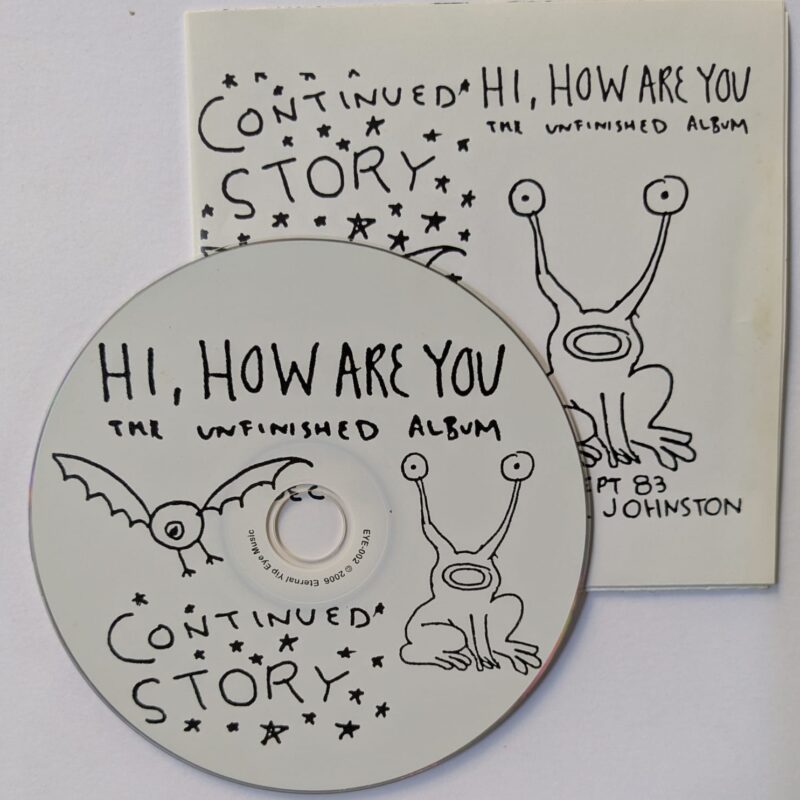 CONTINUED
STORY
HI, HOW ARE YOU
THE UNFINISHED ALBUM
PT 83
JOHNSTON
HI, HOW ARE YOU
THE UNFINISHED ALBUM
EYE-002 © 2006 Eternal Yip Eye Music
CONTINUED
STORY